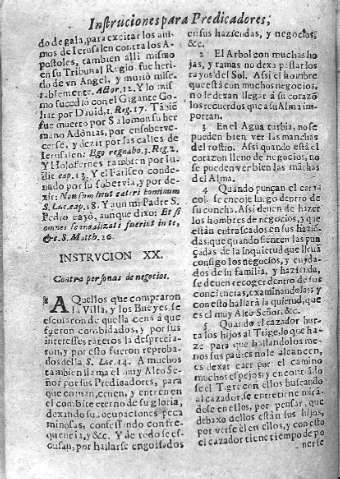 Instruciones para Predicadores,
do de gala, para excitar los ani-
mos de Ierusalen contra los A-
postoles, tambien alli mismo
en su Tribunal Regio fue heri-
do de vn Angel, y murió mise-
rablemente. Actor. 12. Y lo mis
mo sucediò con el Gigante Go-
liat por Dauid, 1. Reg. 17.
fue muerto por Salomon su her
mano Adonias, por ensoberve-
cerse, y dezir por las calles de
Ierusalen: Ego regnabo. 3. Reg. 2,
y Holofernes tambien por Iu-
dic. cap. 13. Y el Fariseo conde-
nado por su sobervia, y por de-
zir: Non sum sicut cæteri hominum
S. Luc. cap. 18. Y aun mi Padre S.
Pedro cayò, aunque dixo: Et si
omnes scandalizati fuerint in te,
&c. S. Math. 26.
INSTRVCION XX.
Contra personas de negocios.
AQuellos que compraron
la Villa, y los Bueyes se
escusaron de aquella cena à que
fueron combidados, y por sus
intereses rateros la desprecia-
ron, y por esto fueron reproba-
dos de la S. Luc. 14. A muchos
tambien llama el muy Alto Se-
ñor por sus Predicadores, para
que coman, cenen, y entren en
el combite eterno de su gloria,
dexando sus ocupaciones peca-
minosas, confessando con fre-
quencia, y &c. Y de todo se es-
cusan, por hallarse engolfados
en sus haziendas, y negocios,
&c.
2 El Arbol con muchas ho-
jas, y ramas no dexa passar los
rayos del Sol. Assi el hombre
que està con muchos negocios,
no le dexan llegar à su coraçò
los recuerdos que à su Alma im-
portan.
3 En el Agua turbia, no se
pueden bien ver las manchas
del rostro. Assi quando està el
coraçon lleno de negocios, no
se pueden ver bien las māchas
del Alma.
4 Quando punçan el cara-
col, se encoje luego dentro de
su concha. Assi deuen de hazer
los hombres de negocios, y que
estàn entrascados en sus hazien
das, que quando sienten las pun-
çadas de la inquietud que lleuā
consigo los negocios, y cuyda-
dos de su familia, y hazienda,
se deuen recoger dentro de sus
conciencias, examinandolas; y
con esto hallarà la quietud, que
es el muy Alto Señor, &c.
5 Quando el cazador hur-
ta los hijos al Tigre, lo que ha-
ze para que hallandolos me-
nos sus padres no le alcancen,
es dexar caer por el camino
muchos espejos, y encontrādo-
se el Tigre con ellos buscando
al cazador, se entretiene miran-
dose en ellos, por pensar, que
debaxo dellos estàn sus hijos,
por verse èl en ellos, y con esto
el cazador tiene tiempo de po
nerse